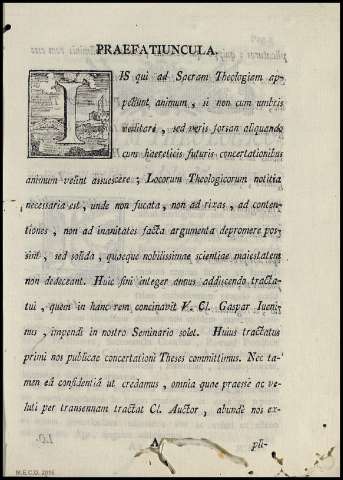 PRAEFATIUNCULA.
IIS qui ad Sacram Theologiam ap-
pellunt animum, si non cum umbris
velitari, sed veris forsan aliquando
cum haereticis futuris concertationibus
animum velint assuescere; Locorum Theologicorum notitia
necessaria est, unde non fucata, non ad rixas, ad conten-
tiones, non ad inanitates facta argumenta depromere pos-
sint, sed solida, quaeque nobilissimae scientiae maiestatem
non dedeceant. Huic fini integer annus addiscendo tracta-
tui, quem in hanc rem concinavit V. Cl. Gaspar Iueni-
nus, impendi in nostro Seminario solet. Huius tractatus
primi nos publicae concertationi Theses committimus. Nec ta-
men eâ confidentiâ ut credamus, omnia quae praesse ac ve-
luti per transennam tractat Cl. Auctor, abundè nos ex-
A
pli-
M.E.C.D. 2016